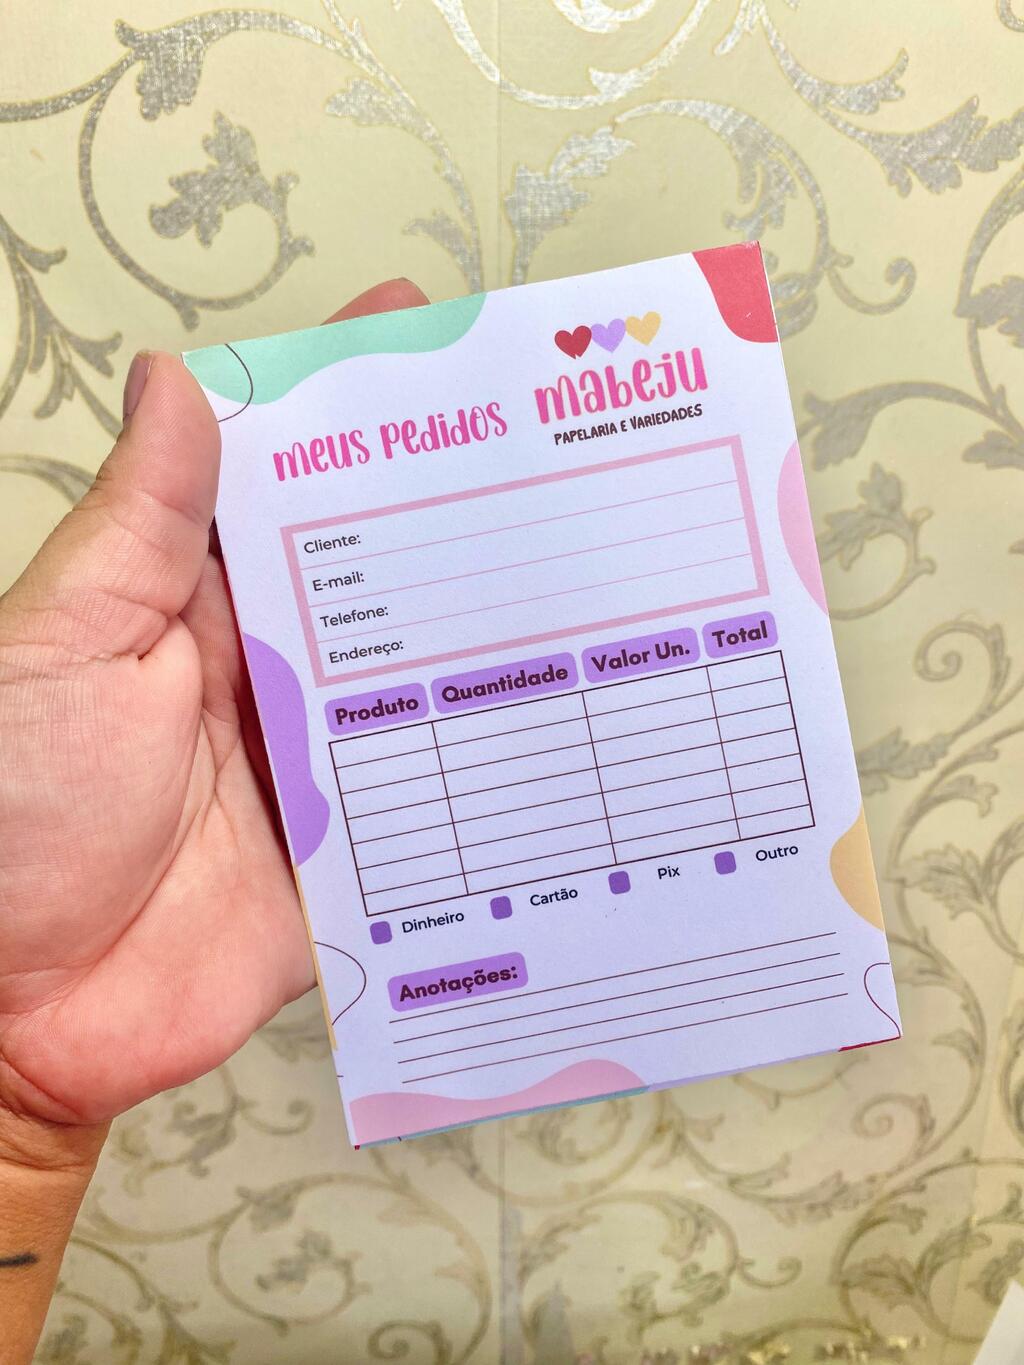 meus pedidos
mabeju
PAPELARIA E VARIEDADES
Cliente:
E-mail:
Telefone:
Endereço:
Produto Quantidade Valor Un. Total
Dinheiro Cartão Pix Outro
Anotações: